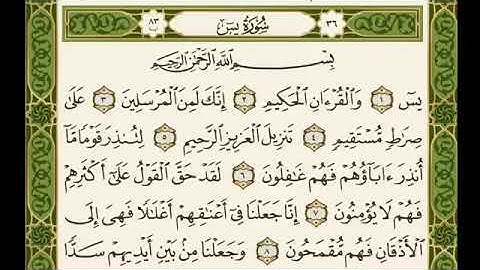 ٣٦ سُورَةُ يسٓ ٨٣
بِسْمِ ٱللَّهِ ٱلرَّحْمَٰنِ ٱلرَّحِيمِ
يسٓ ١ وَٱلْقُرْءَانِ ٱلْحَكِيمِ ٢ إِنَّكَ لَمِنَ ٱلْمُرْسَلِينَ ٣ عَلَىٰ
صِرَٰطٍ مُّسْتَقِيمٍ ٤ تَنزِيلَ ٱلْعَزِيزِ ٱلرَّحِيمِ ٥ لِتُنذِرَ قَوْمًا مَّآ
أُنذِرَ ءَابَآؤُهُمْ فَهُمْ غَٰفِلُونَ ٦ لَقَدْ حَقَّ ٱلْقَوْلُ عَلَىٰٓ أَكْثَرِهِمْ
فَهُمْ لَا يُؤْمِنُونَ ٧ إِنَّا جَعَلْنَا فِىٓ أَعْنَٰقِهِمْ أَغْلَٰلًا فَهِىَ إِلَى
ٱلْأَذْقَانِ فَهُم مُّقْمَحُونَ ٨ وَجَعَلْنَا مِنۢ بَيْنِ أَيْدِيهِمْ سَدًّا